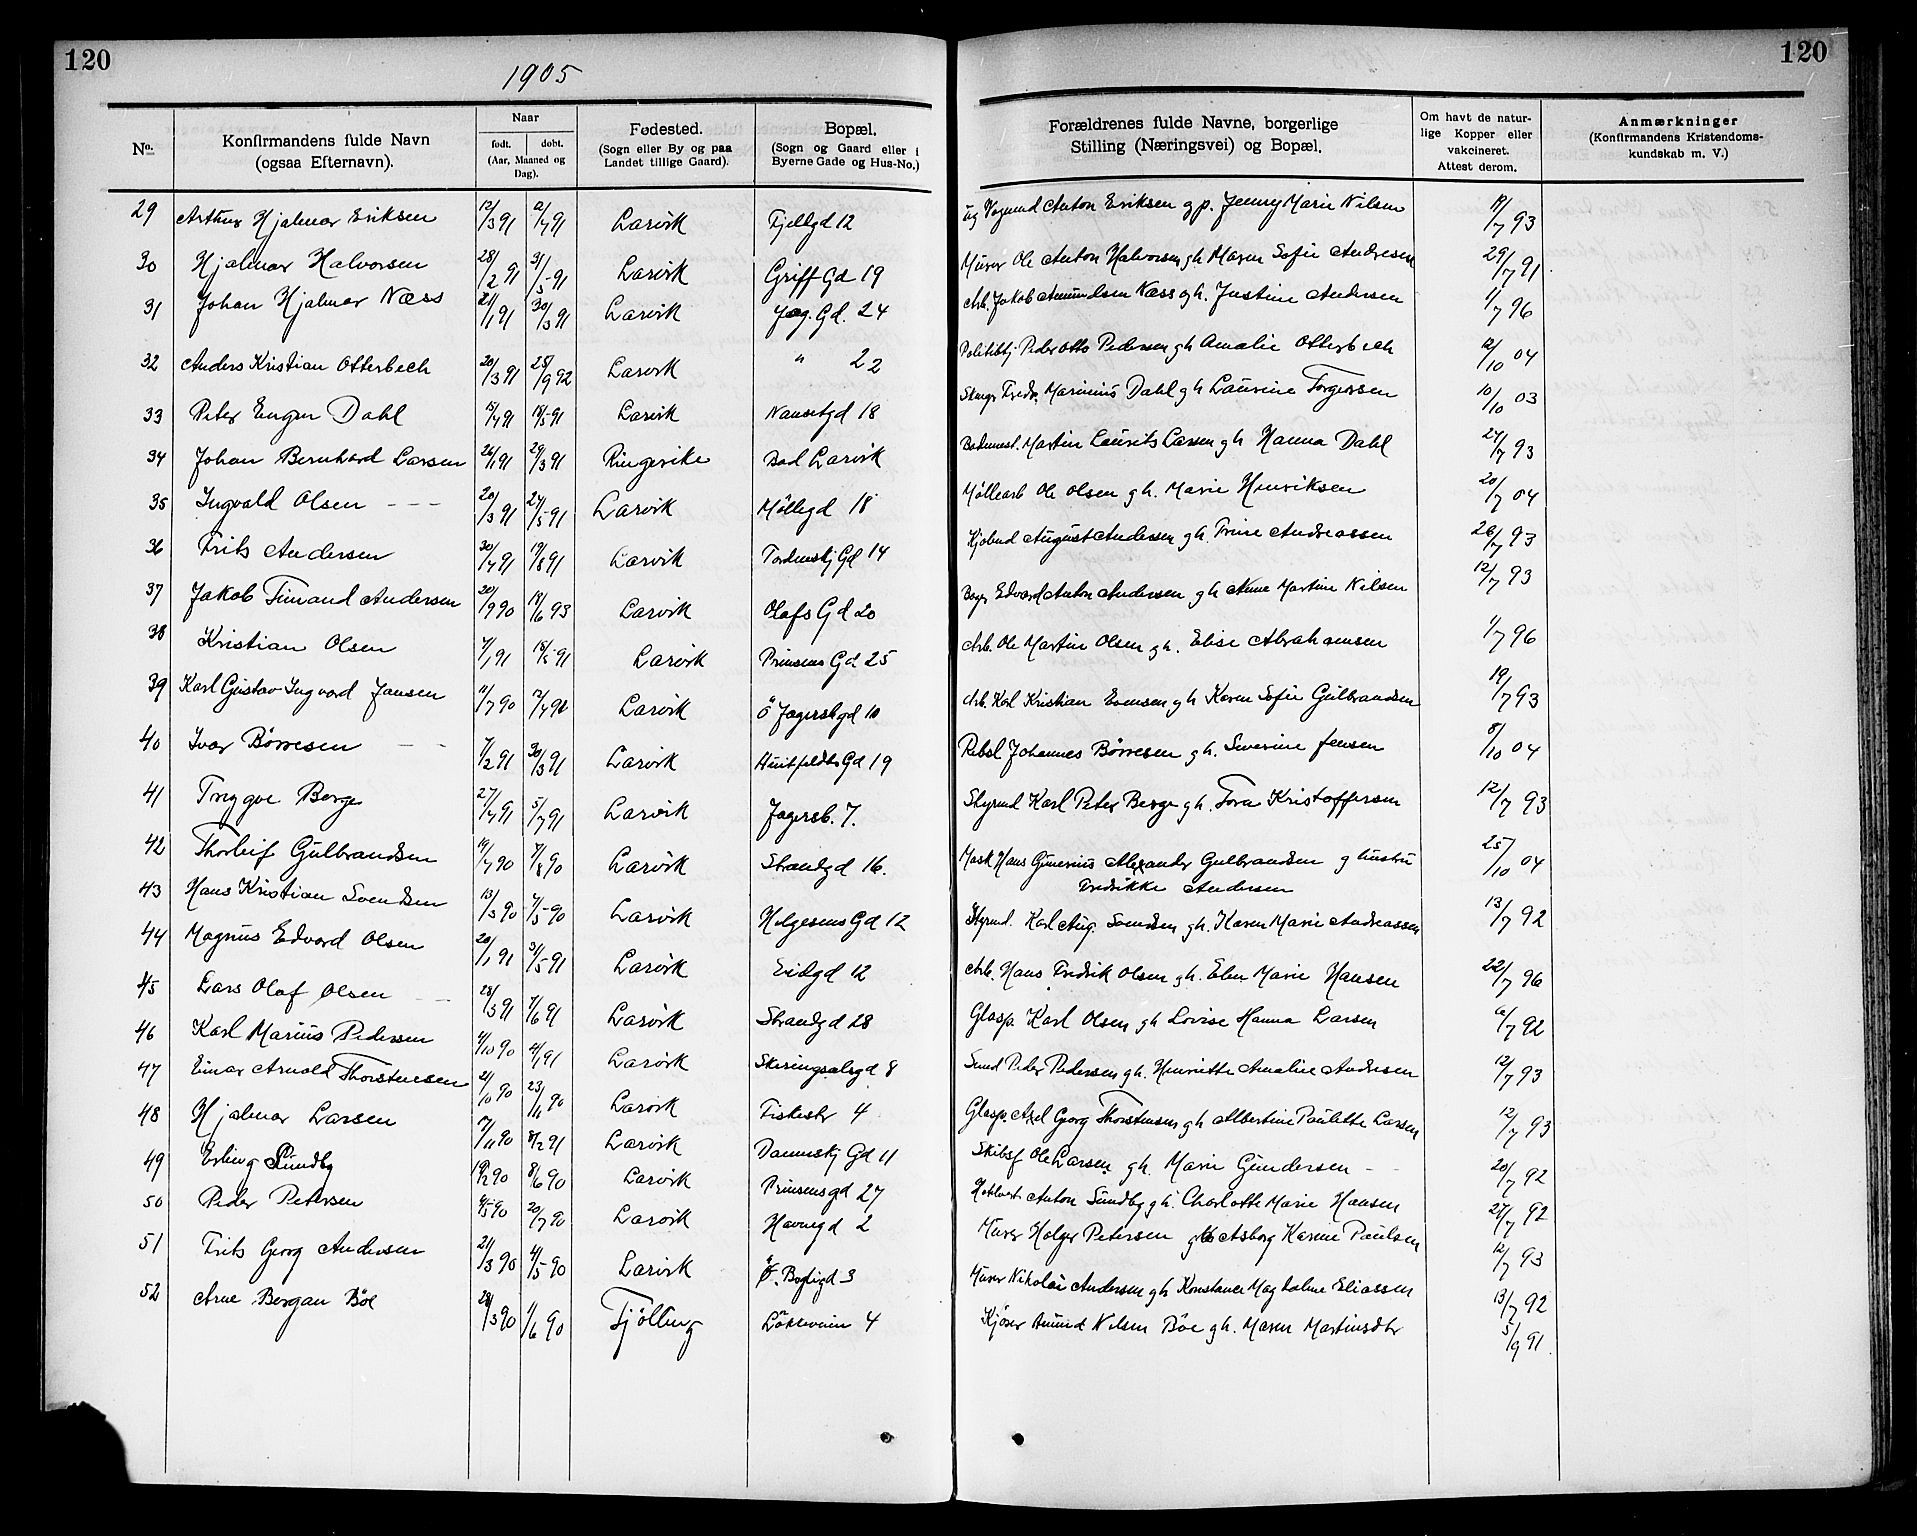 120
1905
120
No. Konfirmandens fulde Navn (ogsaa Efternavn). Naar født. døbt. (Aar, Maaned og Dag). Fødested. (Sogn eller By og paa Landet tillige Gaard). Bopæl. (Sogn og Gaard eller i Byerne Gade og Hus-No.) Forældrenes fulde Navne, borgerlige Stilling (Næringsvei) og Bopæl. Om havt de naturlige Kopper eller vakcineret. Attest derom. Anmærkninger (Konfirmandens Kristendomskundskab m. V.)
29 Arthur Hjalmar Eriksen 12/3 91 Larvik Fjellgd 12 ug Anton Eriksen og p. Jenny Marie Nilsen 19/7 93
30 Hjalmar Halvorsen 28/2 91 31/5 91 Larvik Griff Gd 19 Murer Ole Anton Halvorsen gh Maren Sofie Andresen 29/7 91
31 Johan Hjalmar Næss 21/1 91 30/3 91 Larvik Jæg. Gd. 24 Arb. Jakob Amundsen Næss og h. Justine Andersen 1/7 96
32 Anders Kristian Otterbech 20/3 91 25/9 92 Larvik " 22 Politibtj Peder Otto Pedersen gh Amalie Otterbech 12/10 04
33 Peter Eugen Dahl 15/4 91 18/5 91 Larvik Nansetgd 18 Fredr. Marinius Dahl gh Laurine Torgersen 10/10 03
34 Johan Bernhard Larsen 26/1 91 29/3 91 Ringerike Bad Larvik Bademest. Martin Laurits Larsen gh Hanna Dahl 27/7 93
35 Ingvald Olsen - - - 20/3 91 24/5 91 Larvik Møllegd 18 Møllearb Ole Olsen gh. Marie Henriksen 20/7 04
36 Frits Andersen 30/4 91 19/8 91 Larvik Tordenskj Gd 14 Kjøbmd August Andersen gh. Trine Andreassen 26/7 93
37 Jakob Timand Andersen 20/9 90 18/6 93 Larvik Olafs Gd 20 Edvard Anton Andersen gh Anne Martine Nilsen 12/7 93
38 Kristian Olsen 7/1 91 18/5 91 Larvik Prinsens Gd 25 Arb. Ole Martin Olsen gh. Elise Abrahamsen 1/7 96
39 Karl Gustav Ingvard Jansen 11/7 90 12/4 91 Larvik Ö Jegersbgd 10 Arb. Karl Kristian Evensen gh Karen Sofie Gulbrandsen 19/7 93
40 Ivar Börresen - - 7/2 91 30/3 91 Larvik Huitfeldts Gd 19 Rebsl Johannes Börresen gh. Severine Jensen 8/10 04
41 Trygve Berge 27/4 91 5/7 91 Larvik Jegersb. 7. Styrmd Karl Peter Berge gh. Tora Kristoffersen 12/7 93
42 Thorleif Gulbrandsen 19/4 90 7/8 90 Larvik Strandgd 16. Mask Hans Gunerius Alexander Gulbrandsen g hustru
Fredrikke Andersen 25/10 04
43 Hans Kristian Svendsen 13/3 90 7/5 90 Larvik Helgesens Gd 12 Styrmd. Karl Aug. Svendsen gh. Karen Marie Andreassen 13/7 92
44 Magnus Edvard Olsen 20/1 91 31/5 91 Larvik Eidgd 12 Arb. Hans Fredrik Olsen gh. Elen Marie Hansen 22/7 96
45 Lars Olaf Olsen - - 28/3 91 7/6 91 Larvik Strandgd 28 Glasp. Karl Olsen gh Lovise Hanna Larsen 12/7 92
46 Karl Marius Pedersen 4/10 90 4/1 91 Larvik Skiringsalsgd 8 Smed Peder Pedersen gh. Henriette Amalie Andersen 12/7 93
47 Einar Arnold Thorstensen 21/10 90 23/11 90 Larvik Fiskestr 4 Glasp. Axel Georg Thorstensen gh Albertine Paulette Larsen 12/7 93
48 Hjalmar Larsen 7/11 90 8/2 91 Larvik Danneskj Gd 11 Skibsf Ole Larsen gh. Marie Gundersen - - 20/7 92
49 Erling Sundby 19/2 90 8/6 90 Larvik Prinsensgd 27 Anton Sundby gh. Charlotte Marie Hansen 27/7 92
50 Peder Petersen 4/5 90 20/7 90 Larvik Havnegd 2 Murer Holger Petersen gh Asborg Karine Paulsen 12/7 93
51 Frits Georg Andersen 21/3 90 4/5 90 Larvik Ö. Bøgligd 3 Murer Nikolai Andersen gh Konstance Magdalene Eliassen 13/7 92
52 Arne Bergan Böe 28/3 90 1/6 90 Tjölling Lökkeveien 4 Kjörer Amund Nilsen Böe gh. Maren Martinsdtr 5/9 91